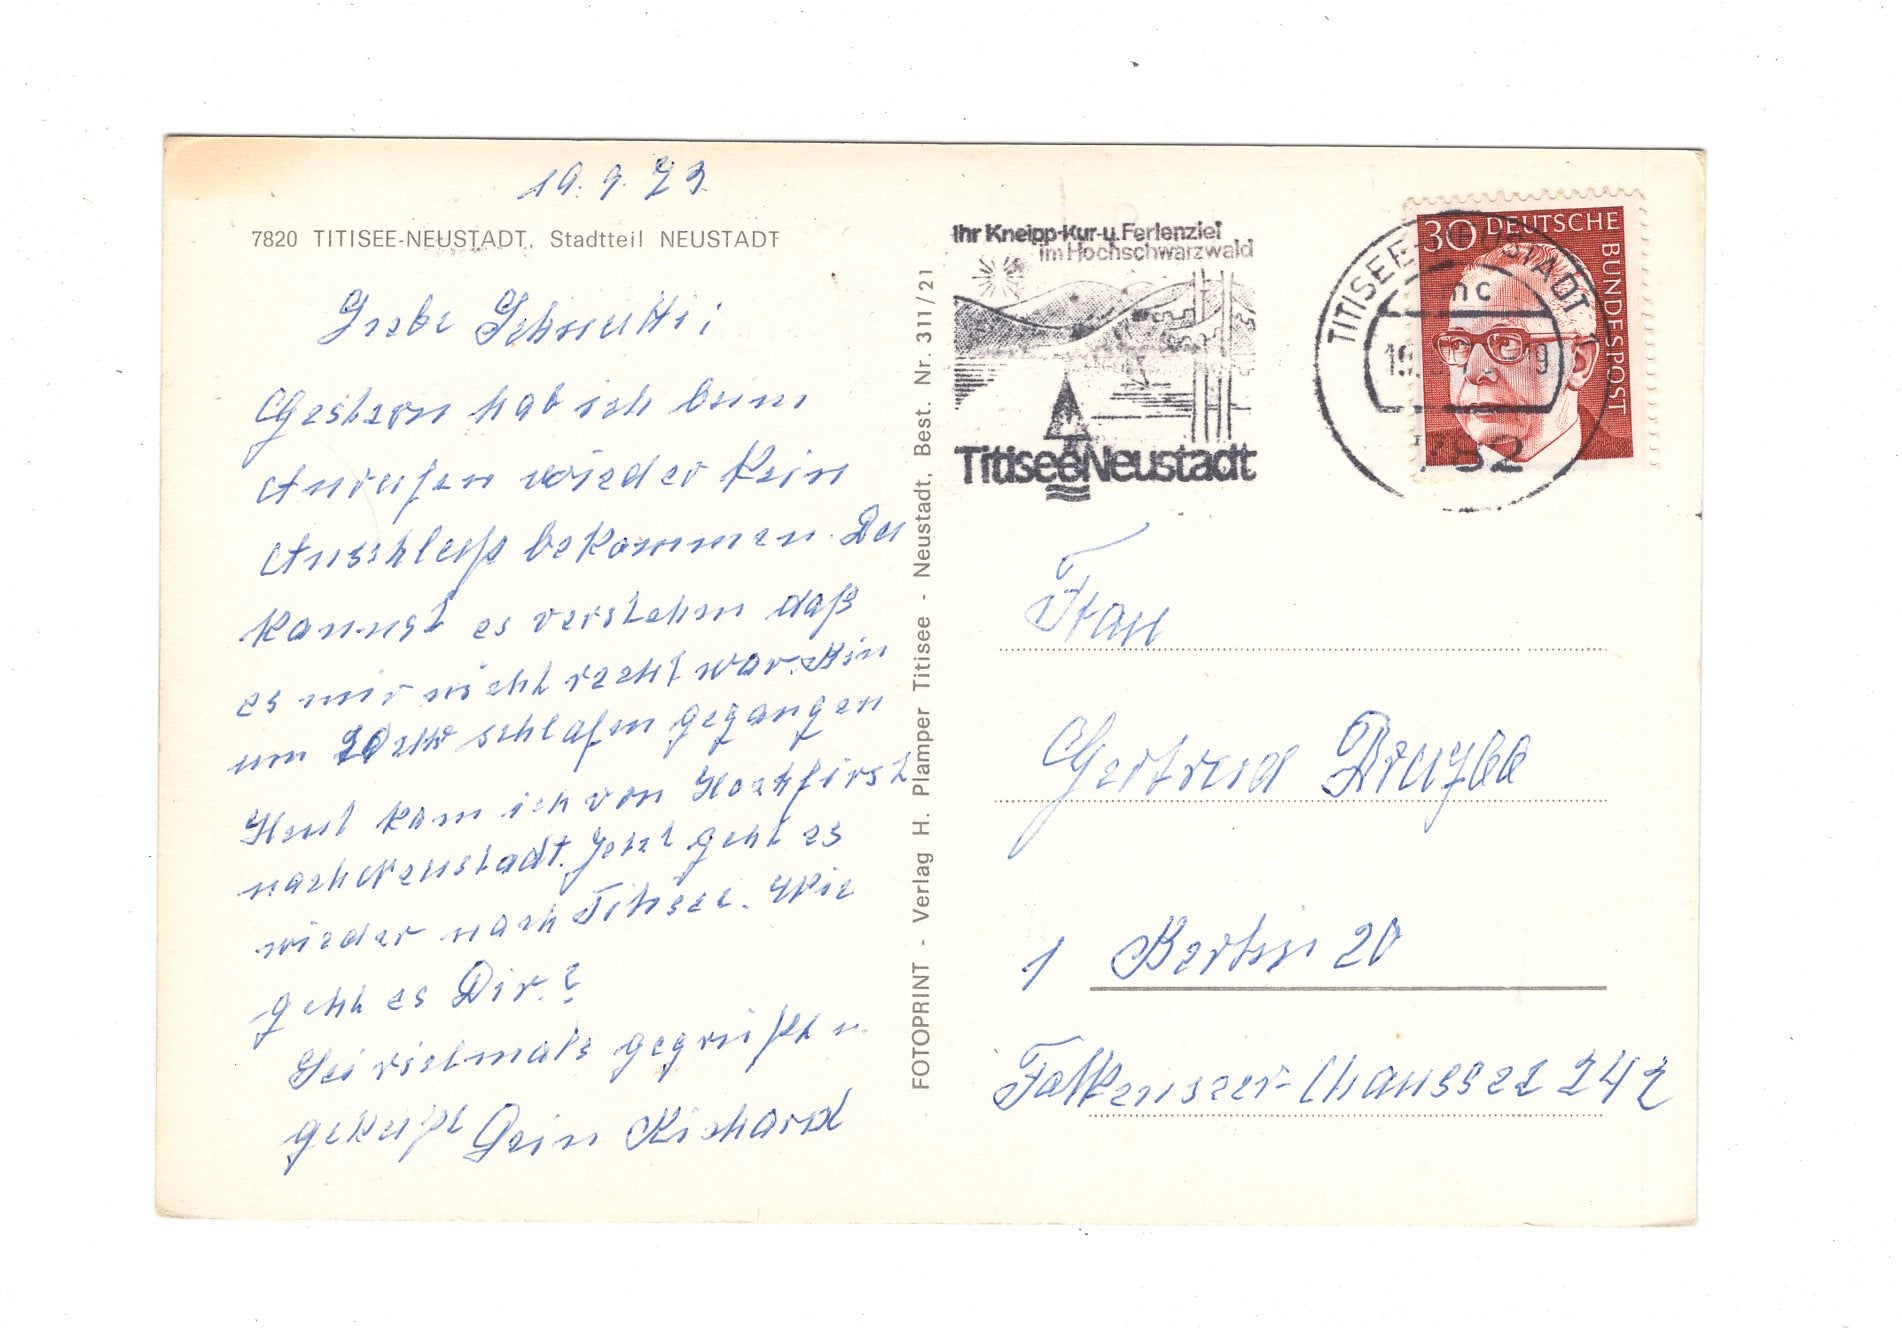 19.9.73
7820 TITISEE-NEUSTADT, Stadtteil NEUSTADT
Liebe Schnutti;
Gestern hab ich beim
Anrufen wieder kein
Anschluß bekommen. Du
kannst es verstehn daß
es mir nicht recht war. Bin
um 20 Uhr schlafen gegangen
Heut kam ich von Hochfirst
nach Neustadt. Jetzt geht es
wieder nach Titisee. Wie
geht es Dir?
Sei vielmals gegrüßt u.
geküßt Dein Richard
FOTOPRINT - Verlag H. Plamper Titisee - Neustadt, Best. Nr. 311/21
Ihr Kneipp-Kur-u. Ferienziel
im Hochschwarzwald
Titisee Neustadt
TITISEE-NEUSTADT 1
nc
782
30 DEUTSCHE
BUNDESPOST
Frau
Gertrud
1 Berlin 20
Falkenseer-Chaussee 242